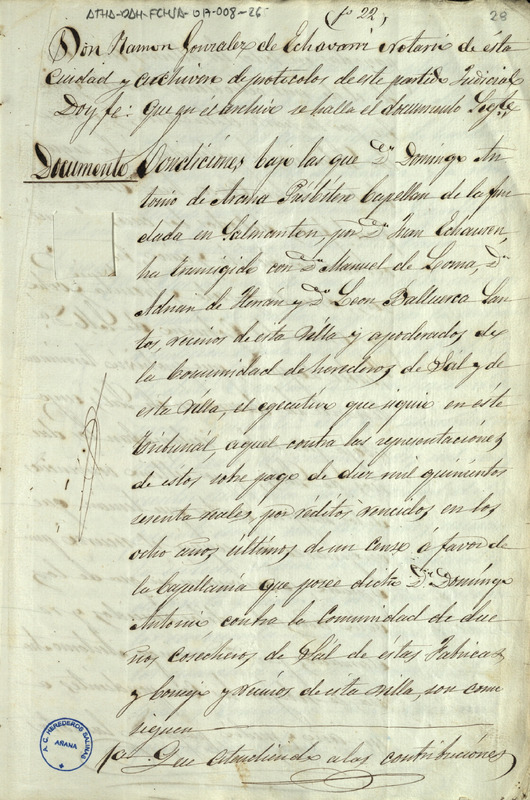 ATHA-DAH-FCHSA-017-008-26
fº 22,
28
Don Ramon Gonzalez de Echavarri Notario de ésta
Ciudad y archivero de protocolos de este partido Judicial
Doy fe: Que en el archivo se halla el documento Sigte.
Documento. Condiciones bajo las que Dn. Domingo An
tonio de Arana Presbitero Capellan de la fun
dada en Salmanton, por Dn. Juan Echavarri,
ha transigido con Dn. Manuel de Loma, Dn.
Adrian de Herrán y Dn. Leon Balluerca San
tos, vecinos de esta villa y apoderados de
la Comunidad de herederos de Sal y de
esta villa, el egecutivo que siguió en éste
tribunál, aquel contra las representaciones
de estos sobre pago de diez mil quinientos
sesenta reales, por réditos vencidos en los
ocho años últimos, de un Censo á favor de
la Capellania que posee dicho Dn. Domingo
Antonio contra la Comunidad de due
ños cosecheros de Sál de éstas Fabricas
y Concejo y vecinos de esta villa, son como
siguen
1ª. Que atendiendo a las contribuciones
A. C. HEREDEROS SALINAS
AÑANA